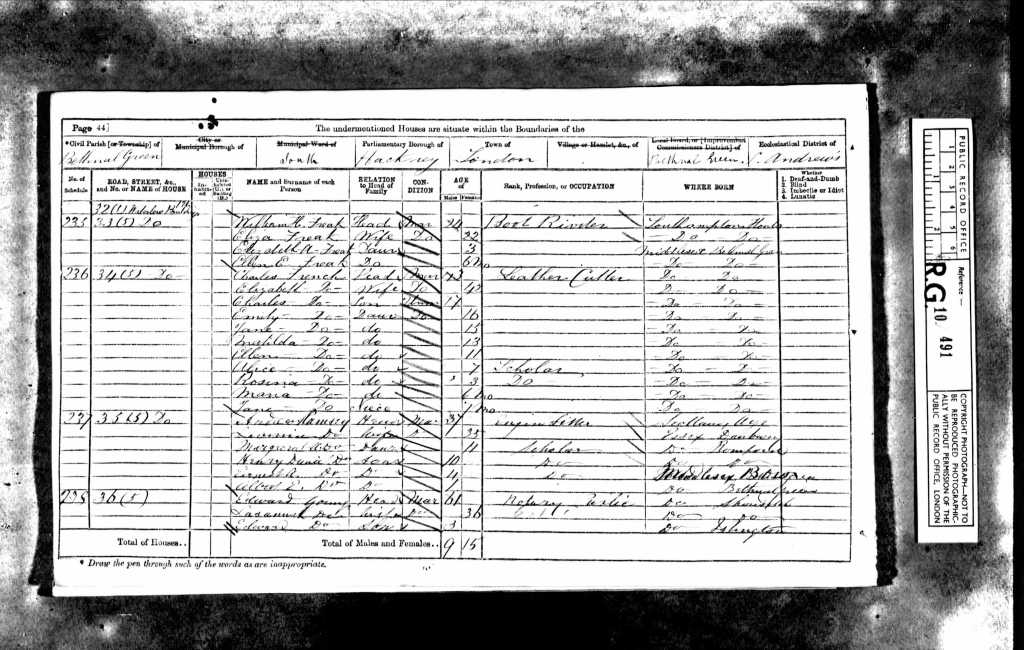 Page 44]
The undermentioned Houses are situate within the Boundaries of the
*Civil Parish [or Township] of
City or Municipal Borough of
Municipal Ward of
Parliamentary Borough of
Town of
Village or Hamlet, &c., of
Local Board, or [Improvement Commissioners District] of
Ecclesiastical District of
Bethnal Green
South
Hackney
London
Bethnal Green
St Andrew's
No. of Schedule
ROAD, STREET, &c., and No. or NAME of HOUSE
HOUSES
Inhabited
Uninhabited (U.), or Building (B.)
NAME and Surname of each Person
RELATION to Head of Family
CONDITION
AGE of
Males
Females
Rank, Profession, or OCCUPATION
WHERE BORN
Whether
1. Deaf-and-Dumb
2. Blind
3. Imbecile or Idiot
4. Lunatic
32 (1)
235 33 (5) Do William H. Freak Head Mar 24 Boot Riveter
Eliza Freak Wife Do 22 Do Do
Elizabeth A. Freak Daur 3 Middlesex Bethnal Green
Ellen E. Freak Do 6 mo Do Do
236 34 (5) Do Charles French Head Mar 43 Leather Cutter Do Do
Elizabeth Do Wife Do 42 Do Do
Charles Do Son 17 Do Do
Emily Do Daur Do 16 Do Do
Jane Do do 15 Do Do
Matilda Do do 13 Do Do
Ellen Do do 11 Do Do
Alice Do do 7 Scholar Do Do
Rosina Do do 3 Do Do Do
Maria Do do 6 mo Do Do
Jane Do Niece 1 mo Do Do
237 35 (5) Do Andrew Ramsey Head Mar 37 Engine Fitter Scotland
Do Wife Do 35 Essex Danbury
Margaret Do Daur 11 Scholar Do Romford
Henry Do 10 Do Do
Do 4 Do Middlesex
Do Do Do Bethnal Green
238 36 (5) Edward Young Head Mar 61 Do
Do Wife Do 36 Do Do
Edward Do Son 3 Do Islington
Total of Houses..
Total of Males and Females..
9 15
* Draw the pen through such of the words as are inappropriate.
PUBLIC RECORD OFFICE
1 2 3 4 5 6
Reference :—
R.G 10 491
COPYRIGHT PHOTOGRAPH—NOT TO BE REPRODUCED PHOTOGRAPHICALLY WITHOUT PERMISSION OF THE PUBLIC RECORD OFFICE, LONDON